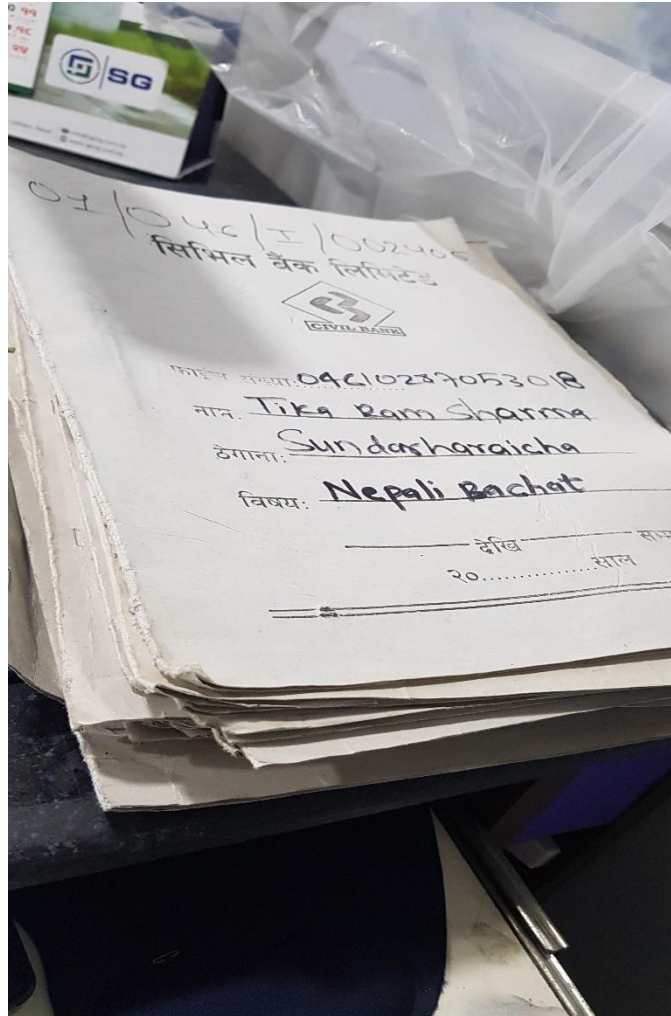 SG
01/046/I/002405
सिभिल बैंक लिमिटेड
CIVIL BANK
फाईल संख्या: 04610237053018
नाम: Tika Ram Sharma
ठेगाना: Sundarharaicha
विषय: Nepali Bachat
देखि
२०.............साल